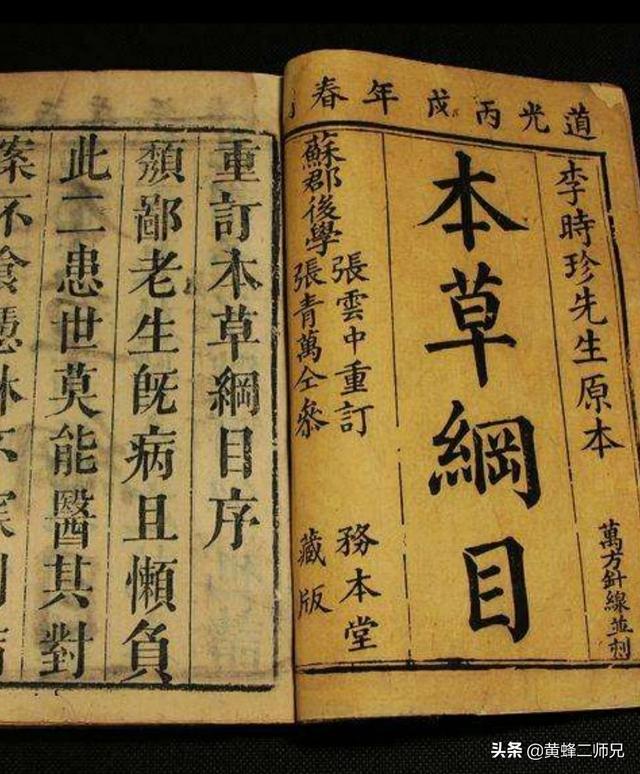 道光丙戌年春
李時珍先生原本
萬方針線並刻
本草綱目
蘇郡後學
張雲中重訂
張青萬仝參
務本堂
藏版
重訂本草綱目序
頹鄙老生旣病且懶負
此二患世莫能醫其對
头条 @黄蜂二师兄